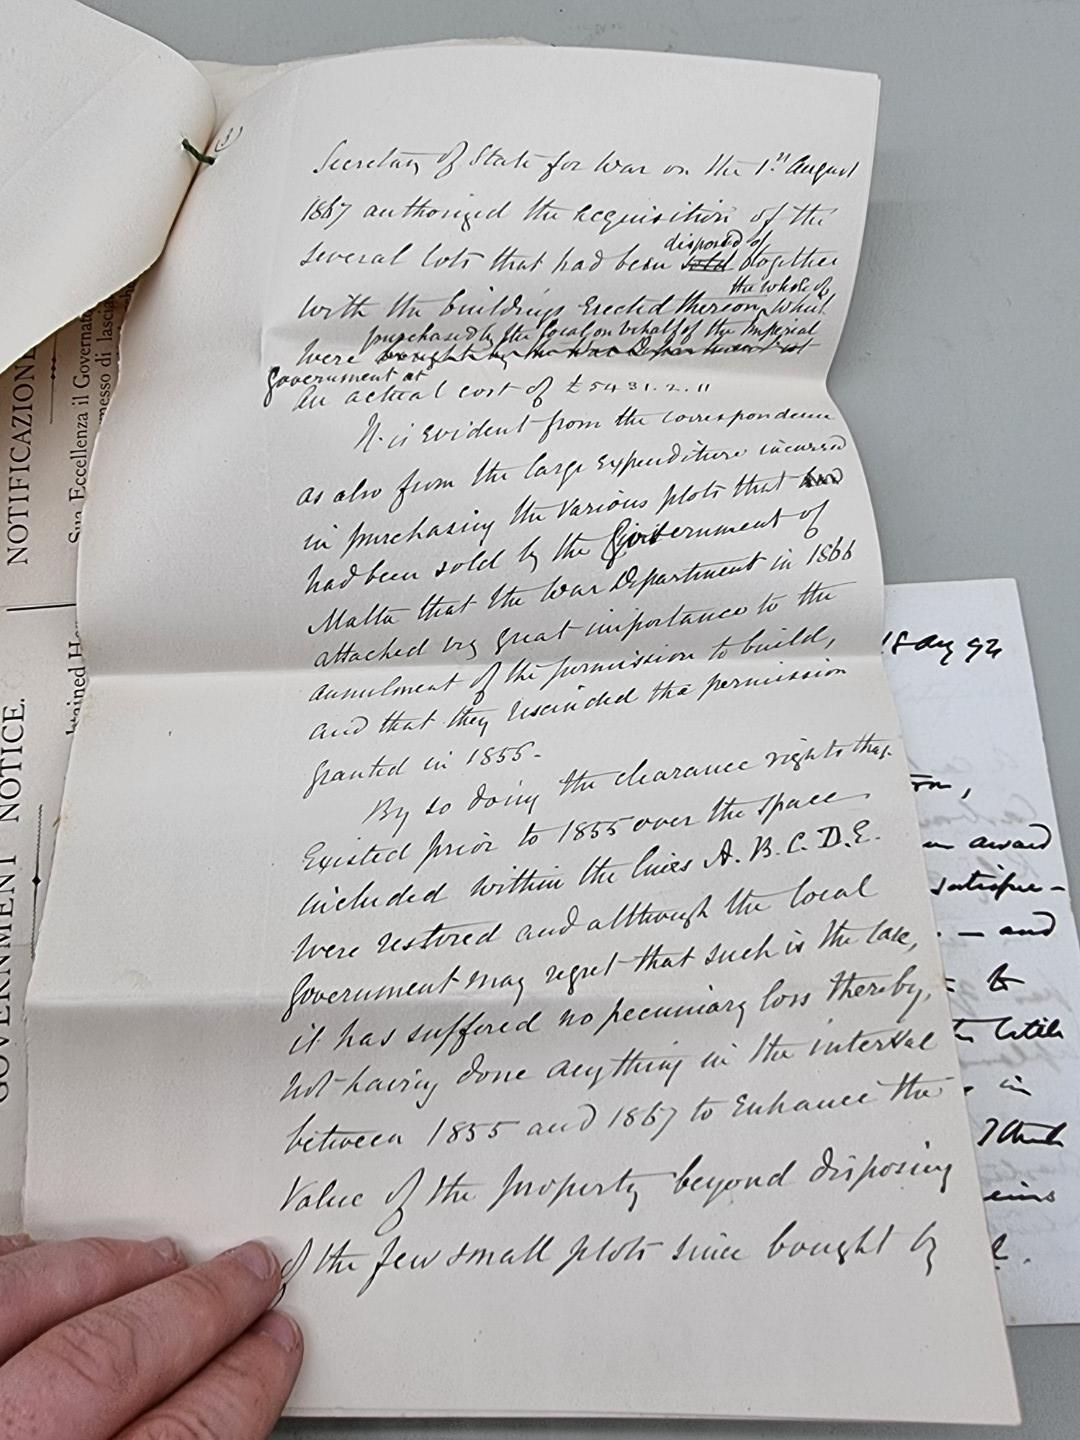 (3)
Secretary of State for War on the 1st August
1867 authorized the acquisition of the
disposed of
several lots that had been sold together
the whole of
with the buildings erected thereon, which
purchased by the local on behalf of the Imperial
were bought by the War Department at
Government at
an actual cost of £5431.2.11
It is evident from the correspondence
as also from the large expenditure incurred
in purchasing the various plots that had
had been sold by the Government of
Malta that the War Department in 1866
attached very great importance to the
annulment of the permission to build,
and that they rescinded the permission
granted in 1855.
By so doing the clearance rights that
existed prior to 1855 over the space
included within the lines A.B.C.D.E.
were restored and although the local
Government may regret that such is the case,
it has suffered no pecuniary loss thereby,
not having done anything in the interval
between 1855 and 1867 to enhance the
value of the property beyond disposing
of the few small plots since bought by
NOTIFICAZIONE
Sua Eccellenza il Governat
messo di lascia
GOVERNMENT NOTICE.
tained
18 Aug 92
award
satisfac-
- and
to
the little
in
I think